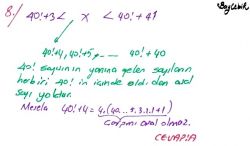 Baykebik
8./ 40!+3 < x < 40!+41
40!+4, 40!+5, ... 40!+40
40! sayısının yanına gelen sayıların
herbiri 40! in içinde olduğundan asal
sayı yoktur.
Mesela 40!+4 = 4.(40...5.3.2.1+1)
Çarpımı asal olmaz.
CEVAP:A